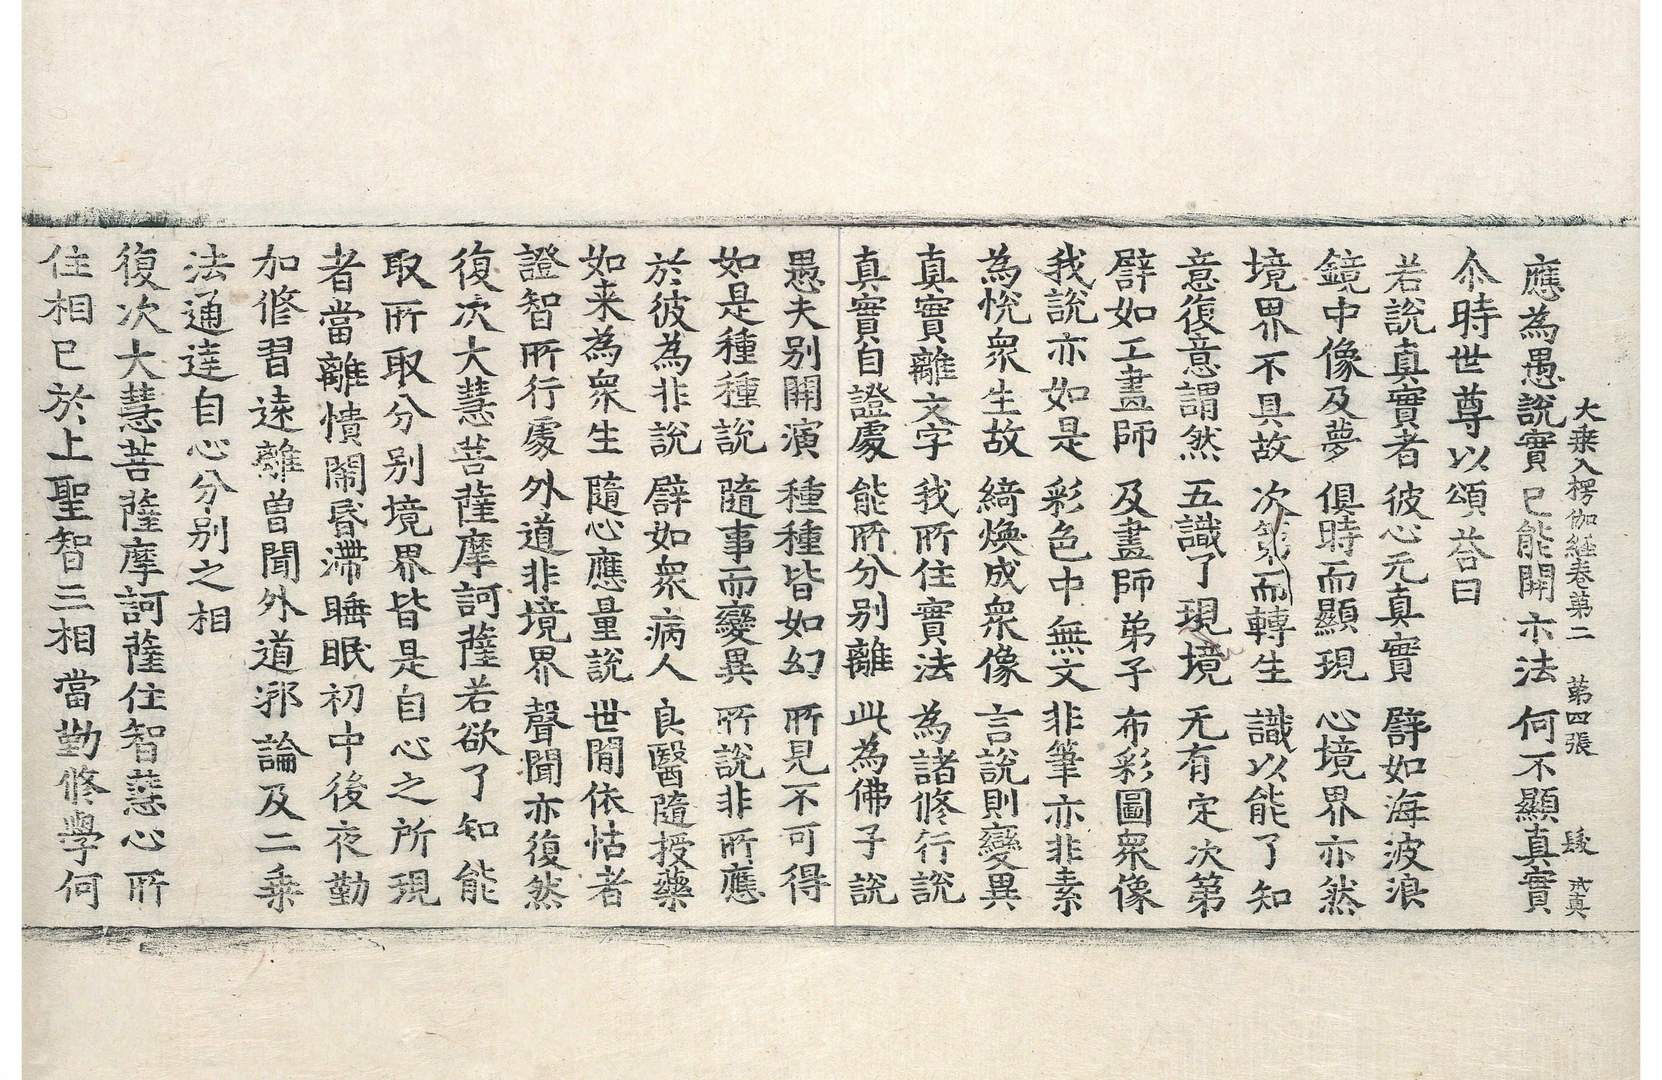 大乗入楞伽経卷第二　第四張　㱥　戒真
應為愚説實　已能開示法　何不顯真實
尒時世尊以頌荅曰
若説真實者　彼心元真實　譬如海波浪
鏡中像及夢　俱時而顯現　心境界亦然
境界不具故　次第而轉生　識以能了知
意復意謂然　五識了現境　无有定次第
譬如工畫師　及畫師弟子　布彩圖衆像
我説亦如是　彩色中無文　非筆亦非素
為悦衆生故　綺煥成衆像　言説則變異
真實離文字　我所住實法　為諸修行説
真實自證處　能所分別離　此為佛子説
愚夫別開演　種種皆如幻　所見不可得
如是種種説　隨事而變異　所説非所應
於彼為非説　譬如衆病人　良醫隨授藥
如来為衆生　隨心應量説　世間依怙者
證智所行處　外道非境界　聲聞亦復然
復次大慧菩薩摩訶薩若欲了知能
取所取分別境界皆是自心之所現
者當離憒閙昏滯睡眠初中後夜勤
加修習遠離曽聞外道邪論及二乗
法通達自心分別之相
復次大慧菩薩摩訶薩住智慧心所
住相已於上聖智三相當勤修學何